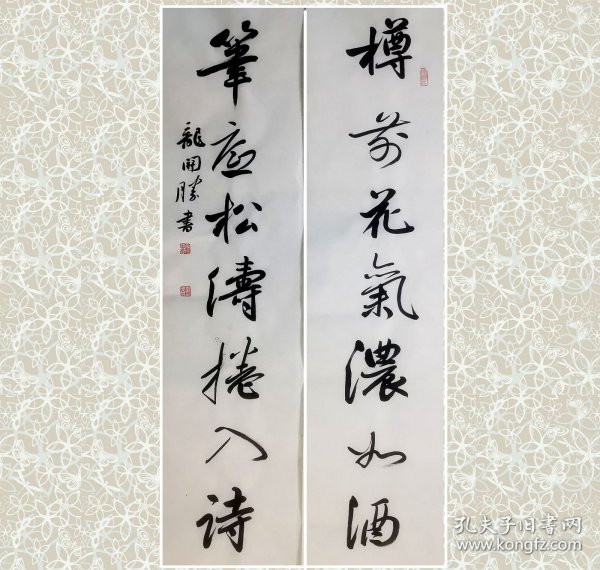 樽前花氣濃如酒
筆底松濤捲入詩
龍開勝書
孔夫子旧书网
www.kongfz.com